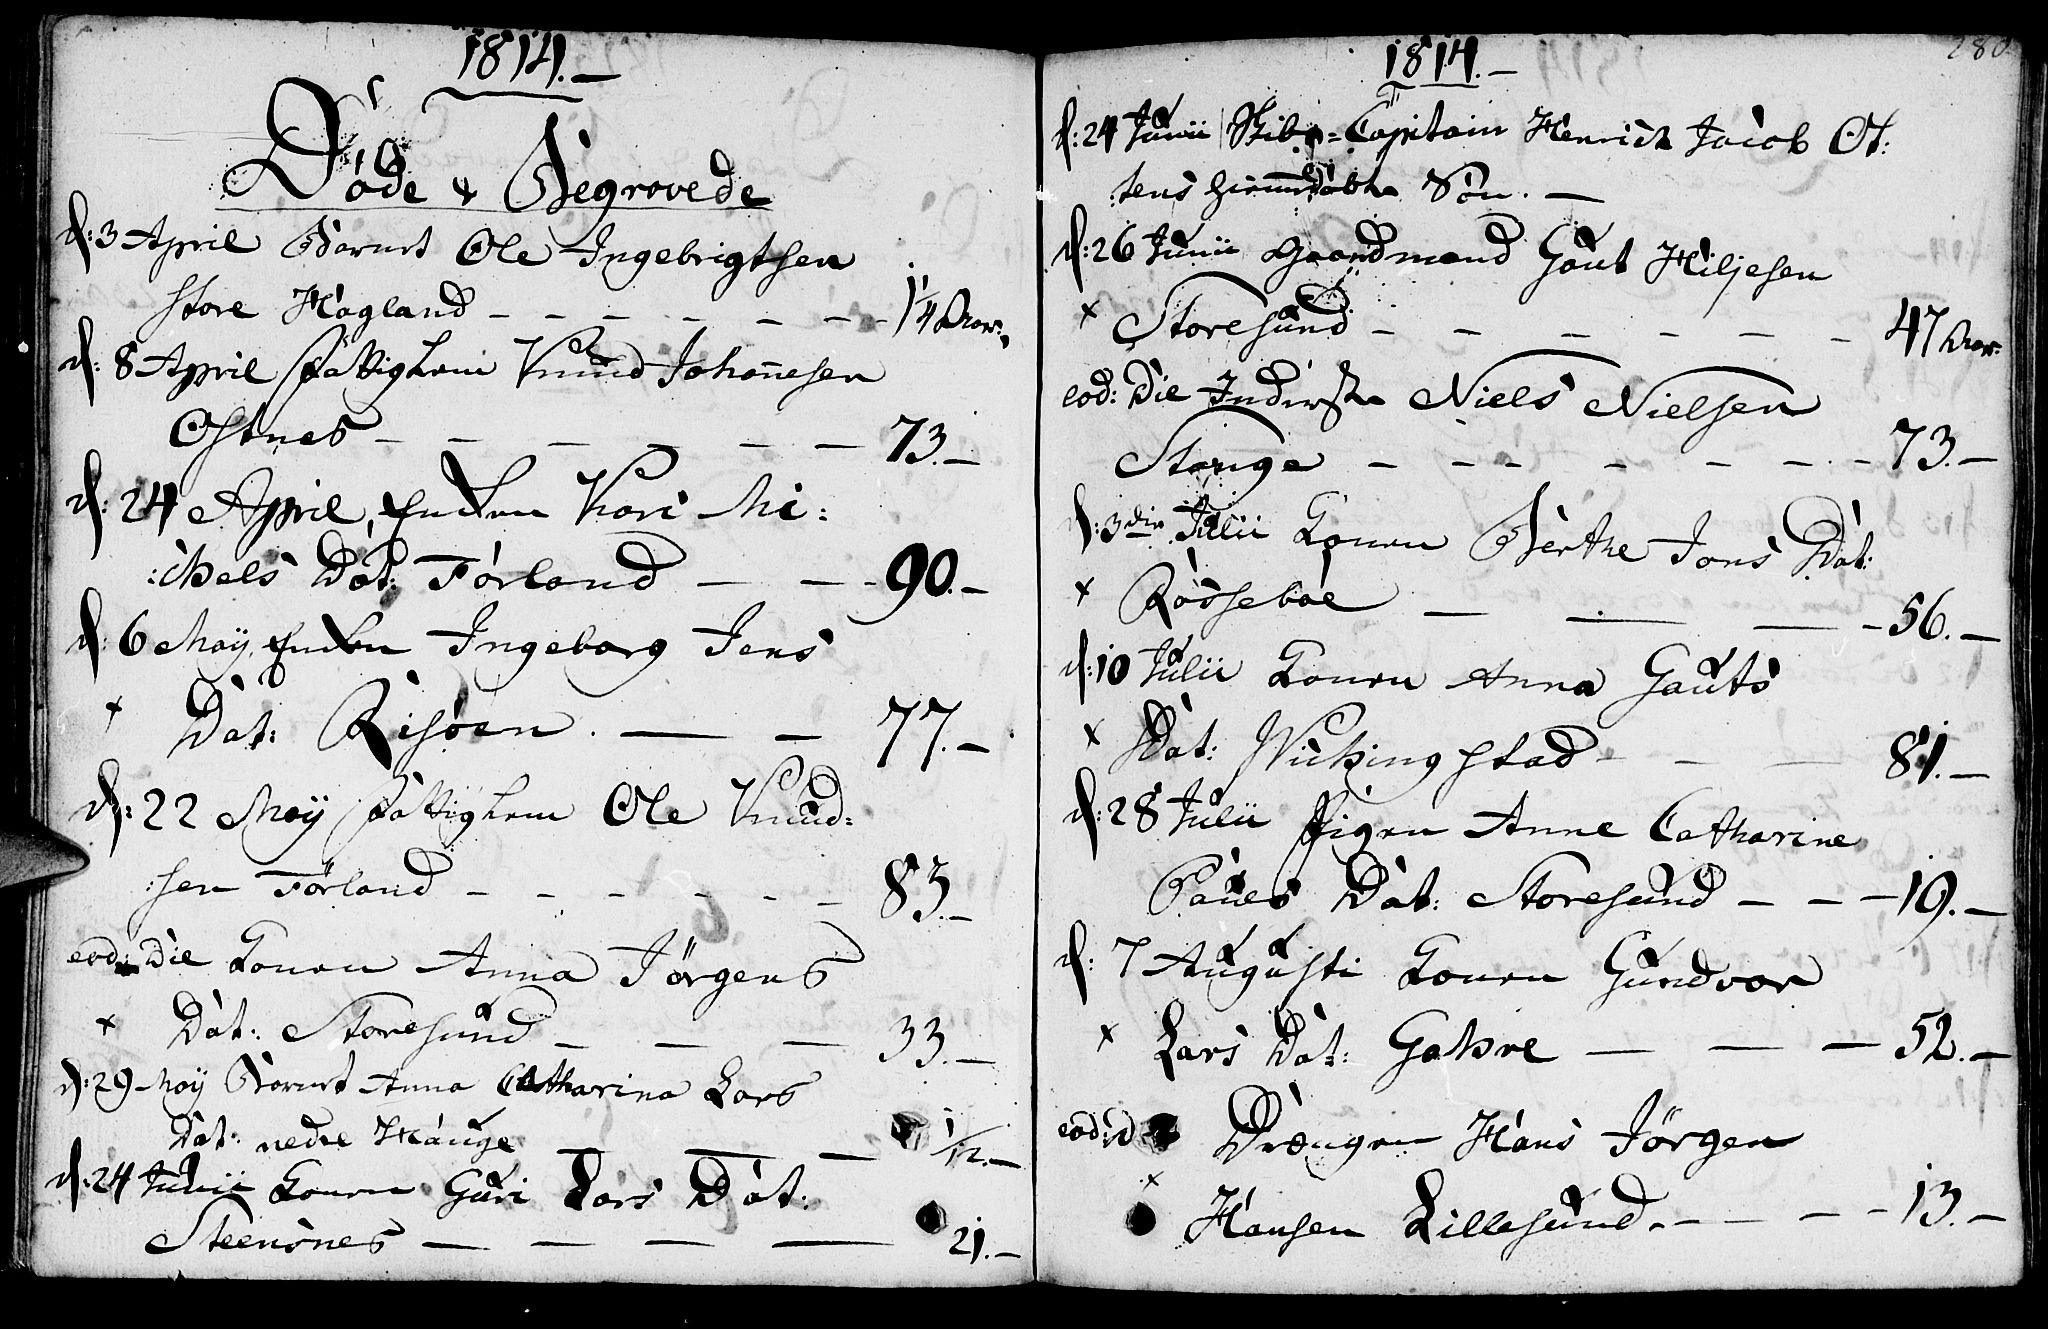 1814.
Døde & Begravede
d: 3 April Barnet Ole Ingebrigtsen
store Hagland - - - - - - - 1/4 Aar.
d: 8 April fattiglem Knud Johannesen
Østnes - - - - - - 73.
d: 24 April, Enken Kari Mi:
:chels Dat: Førland - - - 90.
d: 6 May, Enken Ingeborg Jens
x Dat: Risøen. - - 77.
d: 22 May fattiglem Ole Knud:
:sen Førland - - - - - - 83.
eod: Die Konen Anna Jörgens
x Dat: Storesund - - - 33.
d: 29 May Barnet Anna Catharina Lars
Dat: nedre Hauge - - - 1/12.
d: 24 Junii Konen Guri Lars Dat:
Steensnes - - - - 21.
1814.
280
d: 24 Junii Skibs-Capitain Henrich Jacob Ot:
:tens hiemmedøbte Søn.
d: 26 Junii Gaardmand Gaut Hiljesen
x Storesund - - - - - - 47 Aar.
eod: Die Inderste Niels Nielsen
Stange - - - - - - - 73.
d: 3die Julii Konen Berthe Jons Dat:
x Rødsebøe - - - - 56.
d: 10 Julii Konen Anna Gauts
x Dat: Wichingstad - - - 81.
d: 28 Julii Pigen Anne Catharine
Paues Dat: Storesund - - - 19.
d: 7 Augusti Konen Gundvor
x Lars Dat: Gakre - - - 52.
eod: d Drængen Hans Jörgen
x Hansen Lillesund - - - - 13.